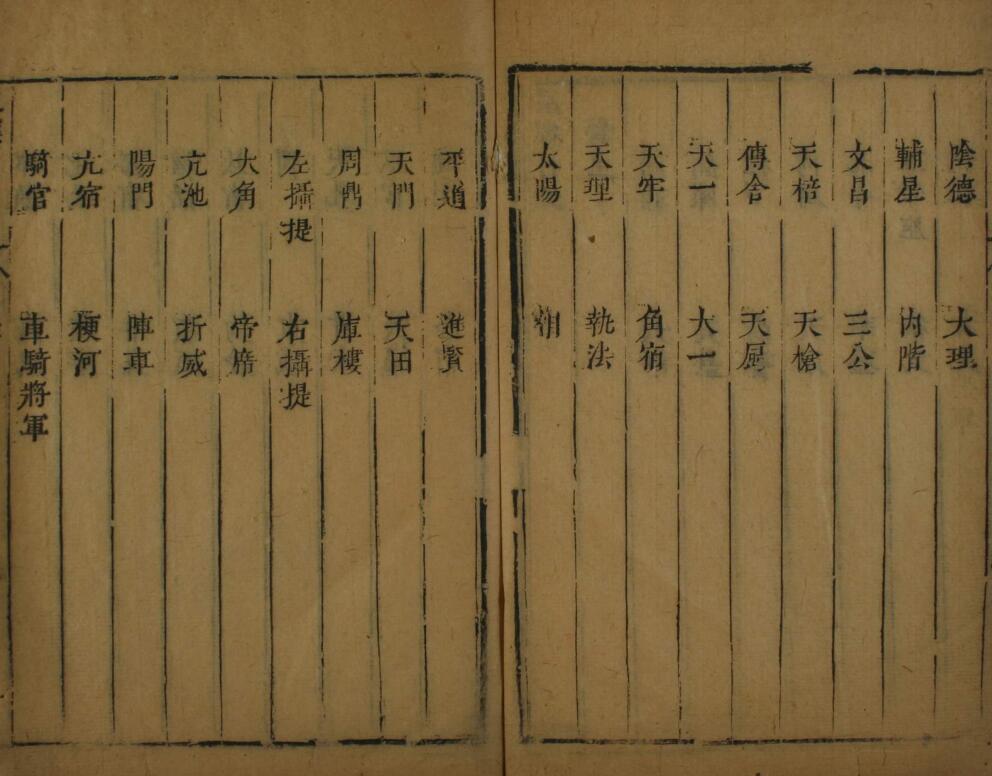 陰德 大理
輔星 內階
文昌 三公
天棓 天槍
傳舍 天屏
天一 大一
天牢 角宿
天理 執法
太陽
平道 進賢
天門 天田
周鼎 庫樓
左攝提 右攝提
大角 帝席
亢池 折威
陽門 陣車
亢宿 梗河
騎官 車騎將軍